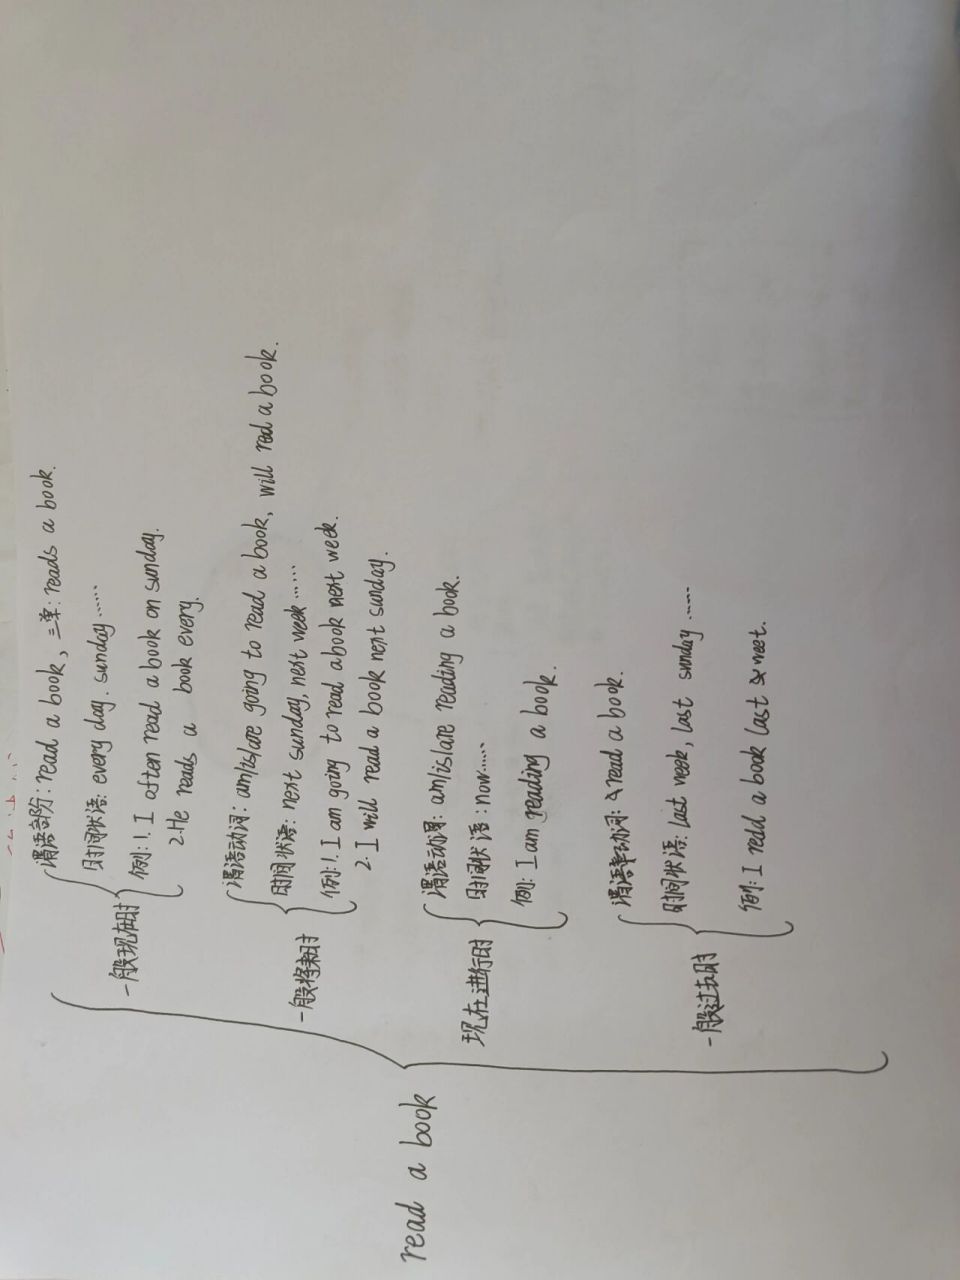 read a book
一般现在时
谓语部阶:read a book,三单:reads a book.
时间状语:every day. sunday……
例:1. I often read a book on sunday.
2.He reads a book every.
一般将来时
谓语动词:am/is/are going to read a book, will read a book.
时间状语:next sunday, next week……
例:1. I am going to read a book next week.
2. I will read a book next sunday.
现在进行时
谓语动词:am/is/are reading a book.
时间状语:now……
例:I am reading a book.
一般过去时
谓语动词:read a book.
时间状语:last week, last sunday……
例:I read a book last